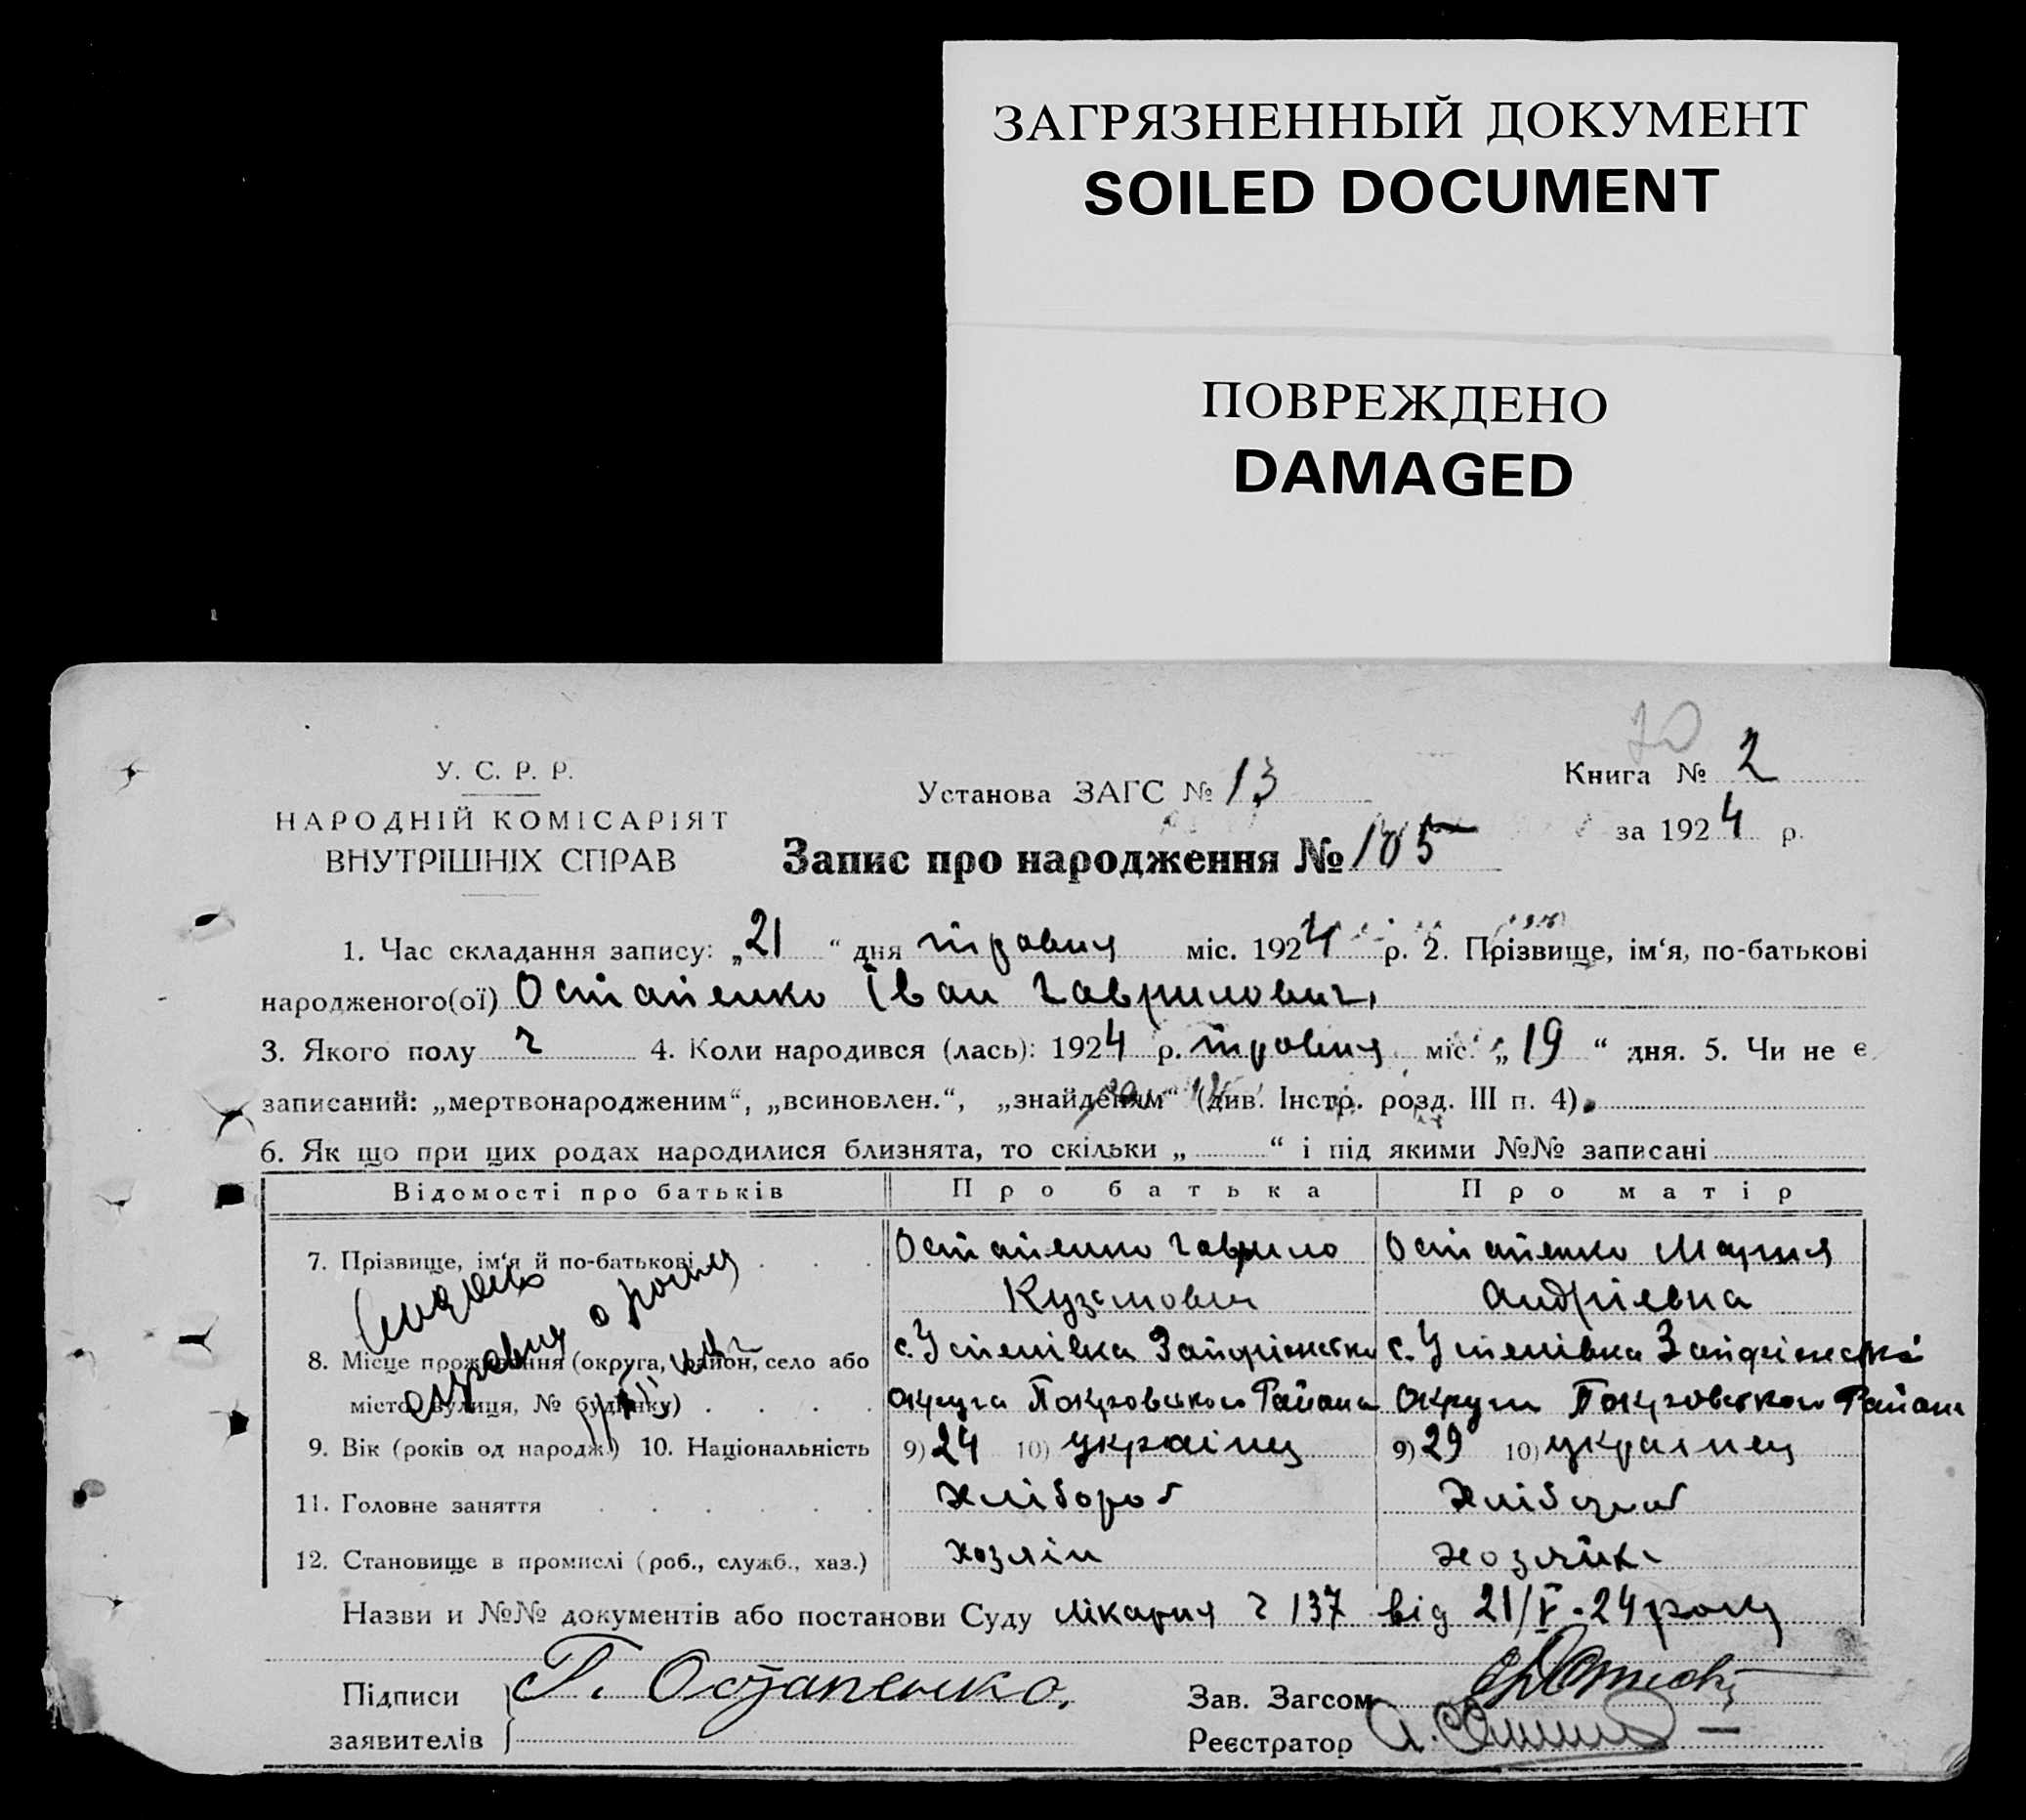 ЗАГРЯЗНЕННЫЙ ДОКУМЕНТ
SOILED DOCUMENT
ПОВРЕЖДЕНО
DAMAGED
У. С. Р. Р.
НАРОДНІЙ КОМІСАРІЯТ
ВНУТРІШНІХ СПРАВ
Установа ЗАГС № 13
70
Книга № 2
за 1924 р.
Запис про народження № 105
1. Час складання запису: „21“ дня травня міс. 1924 р. 2. Прізвище, ім‘я, по-батькові
народженого(ої) Остапенко Іван Гаврилович
3. Якого полу ч 4. Коли народився (лась): 1924 р. травня міс. „19“ дня. 5. Чи не є
записаний: „мертвонародженим“, „всиновлен.“, „знайденям“ (див. Інстр. розд. III п. 4).
6. Як що при цих родах народилися близнята, то скільки „ “ і під якими №№ записані
Відомості про батьків Про батька Про матір
7. Прізвище, ім‘я й по-батькові Остапенко Гаврило Остапенко Мария
Кузьмович Андріевна
8. Місце проживання (округа, район, село або с. Успенівка Запоріжська с. Успенівка Запоріжська
місто, вулиця, № будінку) округа Покровського Района округи Покровського Района
9. Вік (років од народж.) 10. Національність 9) 24 10) українец 9) 29 10) украинец
11. Головне заняття хлібороб хлібороб
12. Становище в промислі (роб., служб., хаз.) хозяін хозяйка
Назви и №№ документів або постанови Суду лікарня ч 137 від 21/V-24 року
Підписи Г. Остапенко. Зав. Загсом
заявителів Реєстратор